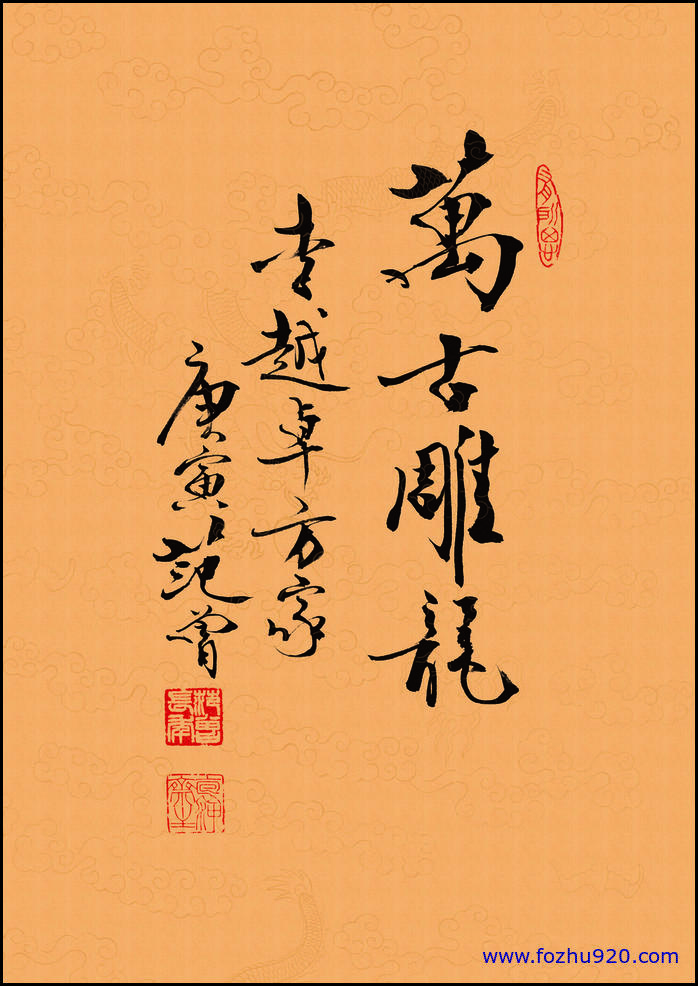 萬古雕龍
李越卓方家
庚寅范曾
范曾長年
www.fozhu920.com